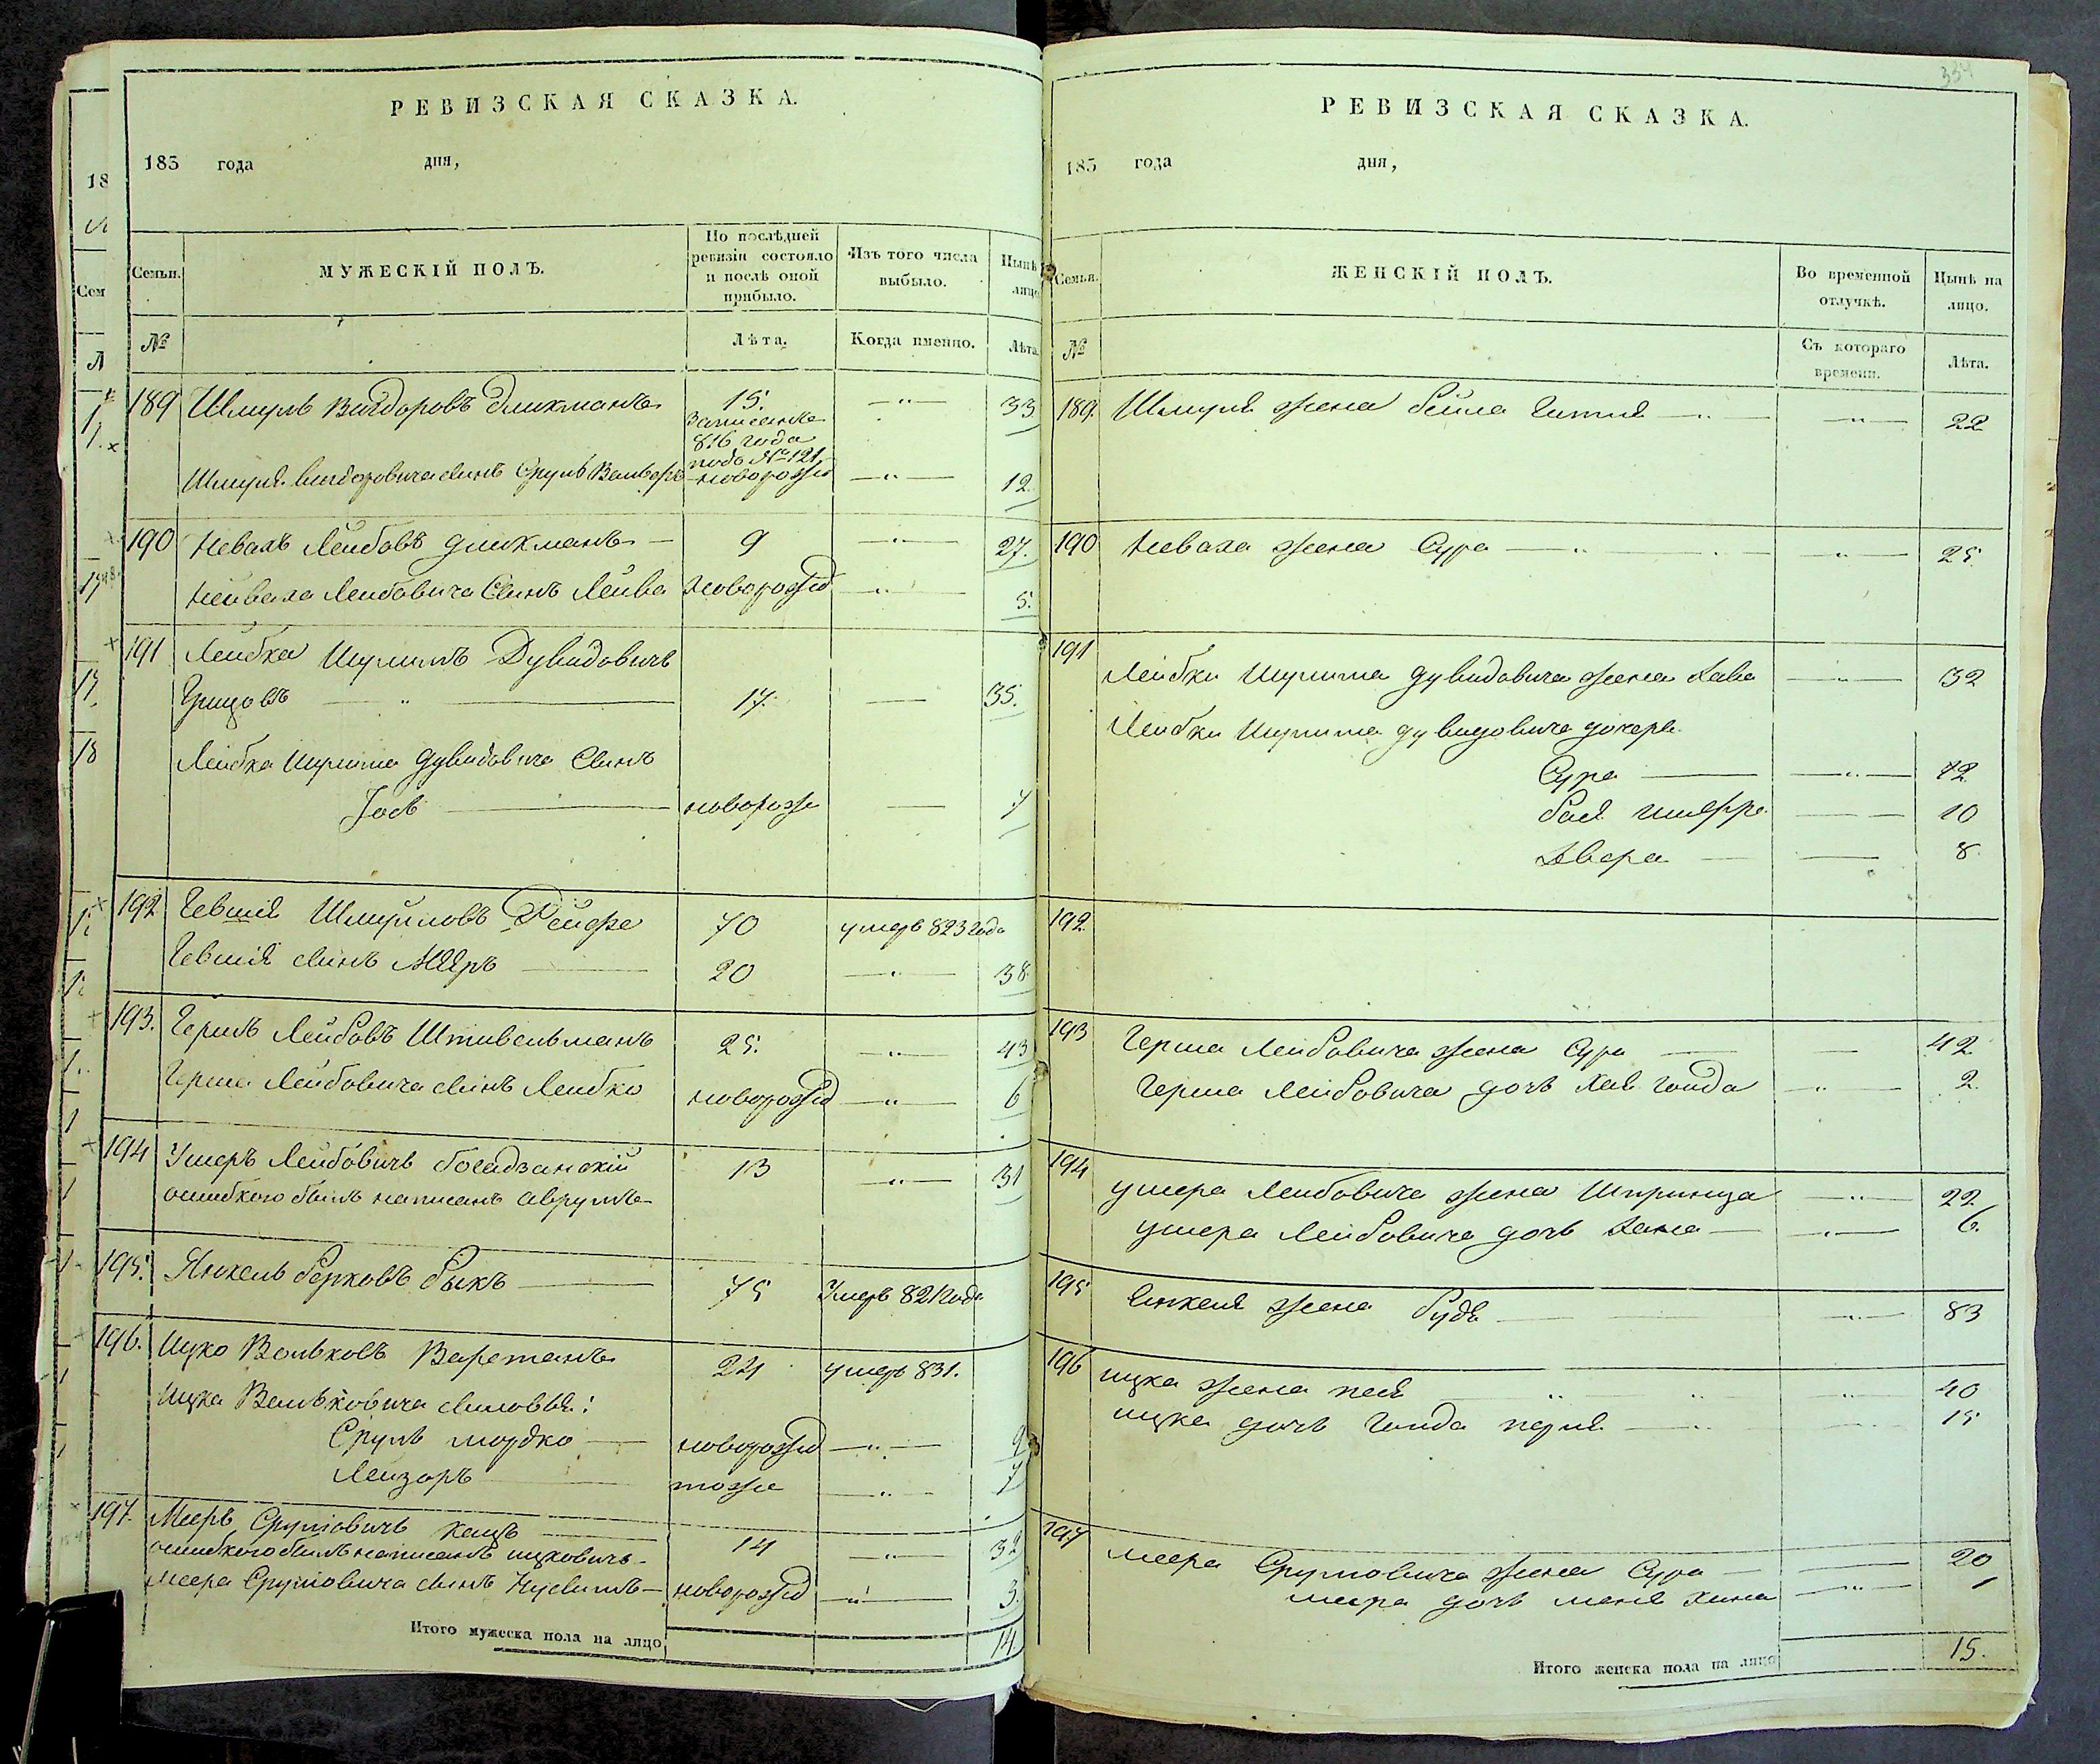 РЕВИЗСКАЯ СКАЗКА.
183 года дня,
Семьи. МУЖЕСКІЙ ПОЛЪ. По послѣдней ревизіи состояло и послѣ оной прибыло. Изъ того числа выбыло. Нынѣ лицо
№ Лѣта. Когда именно. Лѣта.
189 Шмуль Вигдоровъ Гликманъ 15. 33
Записанъ
816 года
подъ № 121
Шмуля Вигдоровича сынъ Сруль новорожд 12
190 Невахъ Лейбовъ Гликманъ 9 27.
Неваха Лейбовича Сынъ Лейба новорожд 5.
191 Лейбка Шулимъ Дувидовичъ
17. 35.
Лейбка Шулима Дувидовича Сынъ
Іось новорож 7
192 Гевшія Шмуйловъ 70 умеръ 823 года
Гевшія сынъ 20 38
193. Гершъ Лейбовъ Штивельманъ 25. 43
Герша Лейбовича сынъ Лейбко новорожд 6
194 Ушеръ Лейбовичъ 13 31
ошибкою былъ написанъ Аврумъ
195. Янкель Берковъ Быкъ 75 Умеръ 821 года
196. Ицко Вольковъ 24 умеръ 831.
Ицка Вольковича сыновья:
Сруль Мордко новорожд 9
Лейзоръ тоже 7
197. Мееръ Срулiовичъ Кацъ 14 32
ошибкою былъ написанъ Ицковичъ
Меера Срулiовича сынъ новорожд 3.
Итого мужеска пола на лицо 14
334
РЕВИЗСКАЯ СКАЗКА.
183 года дня,
Семьи. ЖЕНСКІЙ ПОЛЪ. Во временной отлучкѣ. Нынѣ на лицо.
№ Съ котораго времени. Лѣта.
189. Шмуля жена Бейла Гитля 22
190 Неваха жена Сура 25
191
Лейбки Шулима Дувидовича жена Хава 32
Лейбки Шулима Дувидовича дочери
Сура 12
Бася 10
Двера 8
192
193 Герша Лейбовича жена Сура 42
Герша Лейбовича дочь Хая Голда 2.
194
Ушера Лейбовича жена Шпринца 22
Ушера Лейбовича дочь Хана 6.
195 Янкеля жена 83
196 Ицка жена Песя 40
Ицка дочь Голда Перля 15
197
Меера Срулiовича жена Сура 20
Меера дочь 1
Итого женска пола на лицо 15.